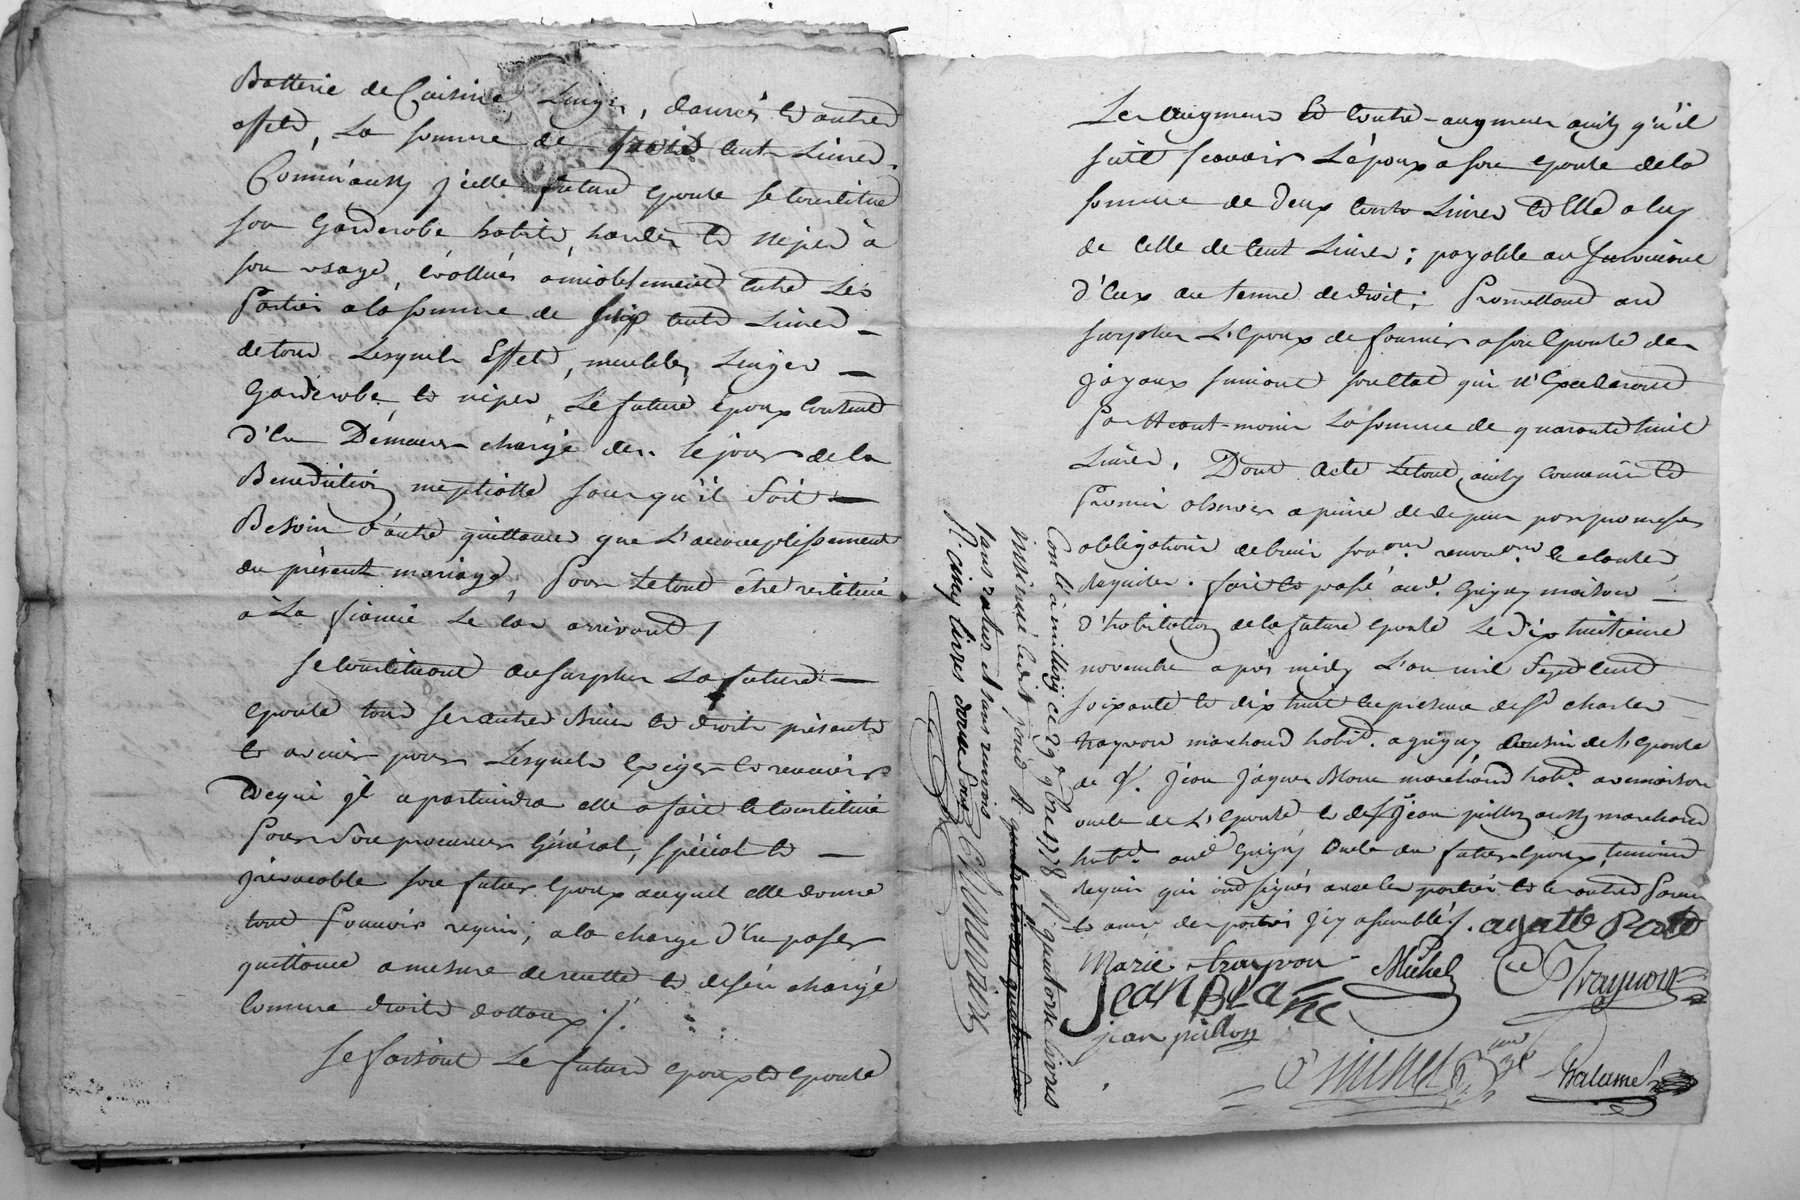 Batterie de Cuisine, Linge, danrés et autres
effets, La somme de trois cents Livres.
Comm'aussy j celle future epouse se constitue
son Garderobe habits, hardes et nipes à
son usage, évallués amiablement entre Les
Parties a la somme de six cents Livres
de tous Lesquels Effets, meubles, Linges
Garderobe et nipes, Le future époux consent
d'en Demeurer chargé des le jour de la
Benediction nuptialle sans qu'il soit
Besoin d'autre quittance que L'accomplissement
du présent mariage, Pour Letout étre restitué
à La fiancée Le cas arrivant /
Se Constituant au surplus La future
epouse tous ses autres Biens et droits présents
et avenir pour Lesquels Exiger et recevoir
De qui jl apartiendra elle a fait et constitué
Pour Son procureur Général, spécial et
jrévocable son futur Epoux auquel elle donne
tout Pouvoir requis, a la charge d'En passer
quittance a mesure de recette et des'en chargé
Comme droits dottaux /.
Se faisant Le futurs epoux et epouse
Les augmens Et Contre-augmens ainsy qu'il
suit scavoir L'époux a son epouse de la
somme de Deux Cents Livres et Elle a luy
de celle de Cent Livres; payable au survivant
d'Eux au terme de droit; Promettant au
surplus L'Epoux de fournir a son Epouse des
joyaux suivant son Etat qui n'Excederont
Par Haut-moins La somme de quarante huit
Livres. Dont Acte Letout ainsy convenu et
Promis observer a peine de depens par promesses
obligations de biens soumons renonons et clauses
Requises. fait et passé aud. Grigny maison
D'habitation de la future epouse Le dix huitieme
novembre apres midy L'an mil Sept Cent
soixante et dix huit en presence de Sr charles
trayvon marchand habt. a grigny Cousin de l'Epouse
de Sr. Jean Jaques Blanc marchand habt.
oncle de L'Epouse et de Sr Jean pillon aussy marchand
habt. aud Grigny Oncle du futur Epoux, temoins
Requis qui ont signés avec les parties et et autres Parens
et amis des parties jcy assemblés /. agathe
Marie trayvon Michel Trayvon
Jean BLANC
jean pillon
Michel
Controllé a milliery ce 29e 9bre 1778 Rt quatorze livres
insinué ledit jour Rt quatre livres
sans ratur et sans renvois
Rt cinq livres